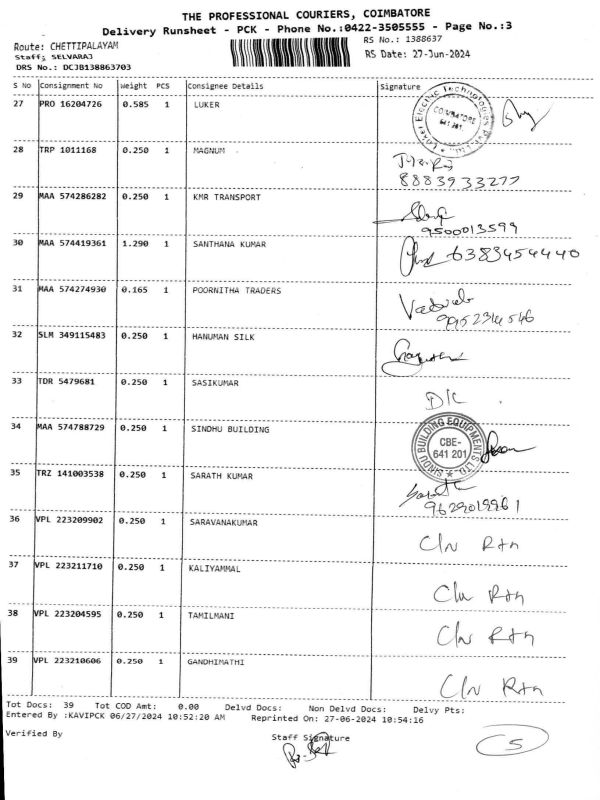 THE PROFESSIONAL COURIERS, COIMBATORE
Delivery Runsheet - PCK - Phone No.:0422-3505555 - Page No.:3
Route: CHETTIPALAYAM
RS No.: 1388637
Staff: SELVARAJ
RS Date: 27-Jun-2024
DRS No.: DCJB138863703
S No Consignment No Weight PCS Consignee Details Signature
27 PRO 16204726 0.585 1 LUKER
Luker Electric Technologies Pvt. Ltd.
COIMBATORE
641 201
28 TRP 1011168 0.250 1 MAGNUM
8883933277
29 MAA 574286282 0.250 1 KMR TRANSPORT
9500013599
30 MAA 574419361 1.290 1 SANTHANA KUMAR
6383454440
31 MAA 574274930 0.165 1 POORNITHA TRADERS
32 SLM 349115483 0.250 1 HANUMAN SILK
33 TDR 5479681 0.250 1 SASIKUMAR
D/C
34 MAA 574788729 0.250 1 SINDHU BUILDING
SINDU BUILDING EQUIPMENTS LTD.
CBE-
641 201
35 TRZ 141003538 0.250 1 SARATH KUMAR
36 VPL 223209902 0.250 1 SARAVANAKUMAR
Cln Rtn
37 VPL 223211710 0.250 1 KALIYAMMAL
Cln Rtn
38 VPL 223204595 0.250 1 TAMILMANI
Cln Rtn
39 VPL 223210606 0.250 1 GANDHIMATHI
Cln Rtn
Tot Docs: 39 Tot COD Amt: 0.00 Delvd Docs: Non Delvd Docs: Delvy Pts:
Entered By :KAVIPCK 06/27/2024 10:52:20 AM Reprinted On: 27-06-2024 10:54:16
Verified By
Staff Signature